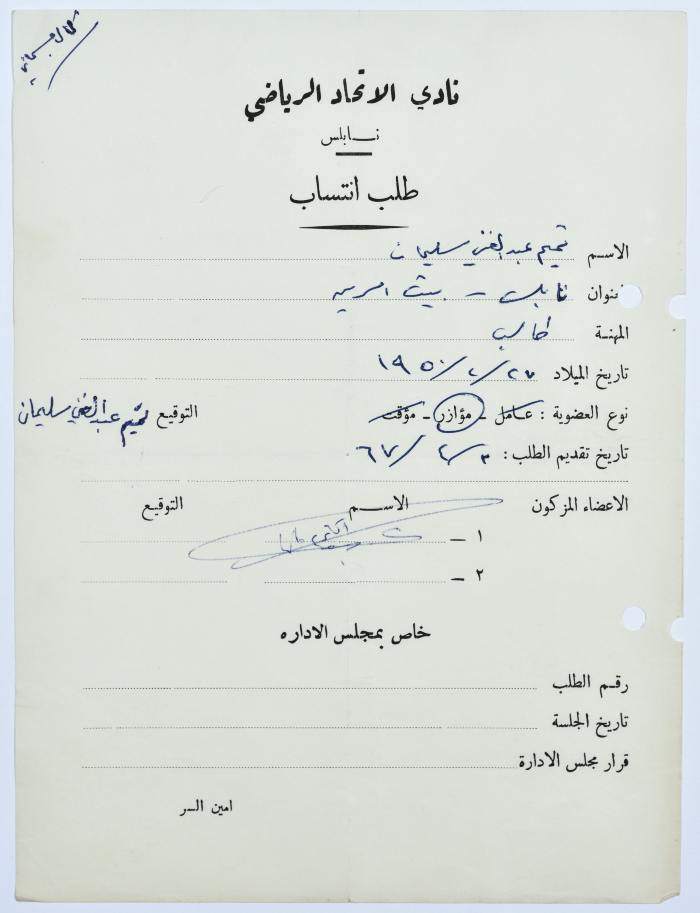 نادي الاتحاد الرياضي
نــابلس
طلب انتساب
الاسـم تميم عبد الغني سليمان
العنوان نابلس - بيت امرين
المهنة طالب
تاريخ الميلاد ٢٧/ ٢/ ١٩٥٠
نوع العضوية : عـامل - مؤازر - مؤقت التوقيع تميم عبد الغني سليمان
تاريخ تقديم الطلب : ٣/ ٢/ ٦٧
الاعضاء المزكون الاســم التوقيع
١ –
٢ –
خاص بمجلس الاداره
رقـم الطلب
تاريخ الجلسة
قرار مجلس الادارة
امين السر